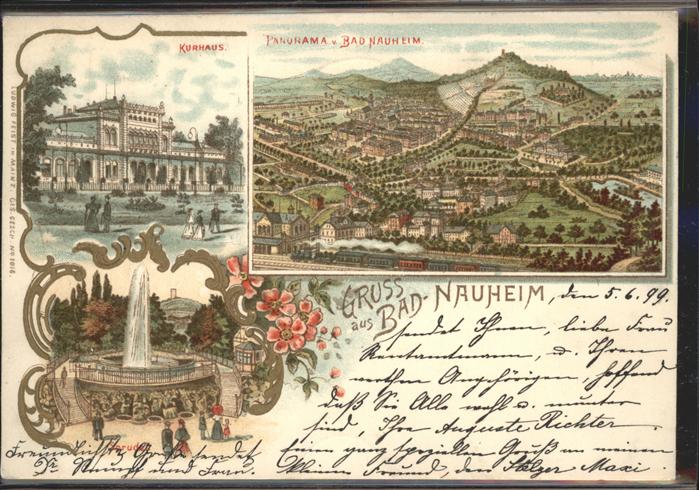 KURHAUS.
PANORAMA v. BAD NAUHEIM.
LUDWIG FEIST in MAINZ. GES. GESCH. No 1016.
GRUSS
aus BAD-NAUHEIM, den 5.6.99.
sendet Ihnen, liebe Frau
Rentamtmann, u. Ihren
werthen Angehörigen, hoffend
daß Sie Alle wohl u. munter
sind, Ihre Auguste Richter.
Einen ganz speziellen Gruß an meinen
kleinen Freund, den Maxi.
Sprudel
Freundlichst Gruß sendet
Dr. und Frau.